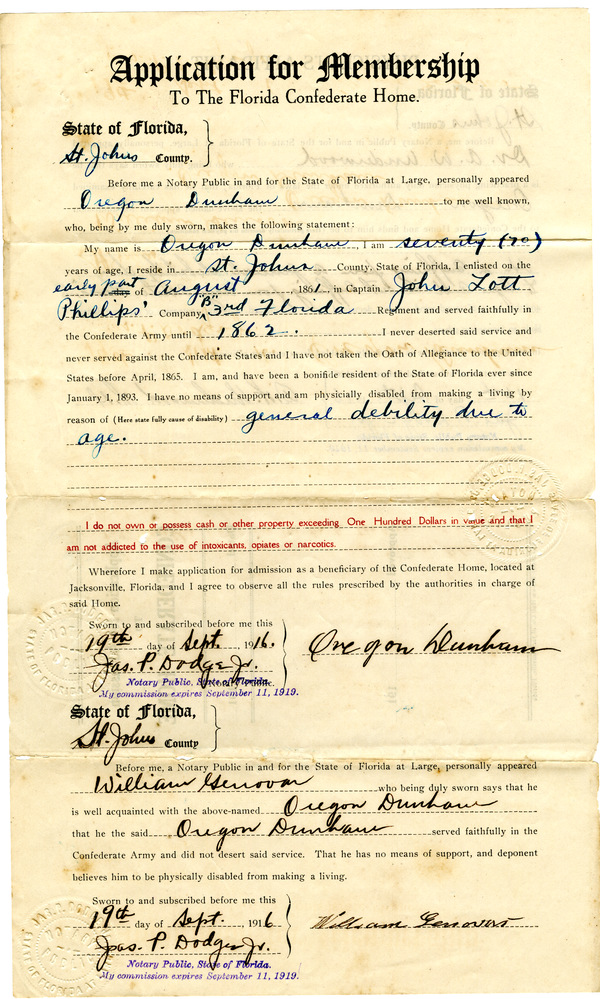 Application for Membership
To The Florida Confederate Home.
State of Florida,
St. Johns County.
Before me a Notary Public in and for the State of Florida at Large, personally appeared
Oregon Dunham to me well known,
who, being by me duly sworn, makes the following statement:
My name is Oregon Dunham, I am seventy (70)
years of age, I reside in St. Johns County, State of Florida, I enlisted on the
early part day of August, 1861, in Captain John Lott
Phillips' Company "B" 3rd Florida Regiment and served faithfully in
the Confederate Army until 1862. I never deserted said service and
never served against the Confederate States and I have not taken the Oath of Allegiance to the United
States before April, 1865. I am, and have been a bonifide resident of the State of Florida ever since
January 1, 1893. I have no means of support and am physicially disabled from making a living by
reason of (Here state fully cause of disability) general debility due to
age.
I do not own or possess cash or other property exceeding One Hundred Dollars in value and that I
am not addicted to the use of intoxicants, opiates or narcotics.
Wherefore I make application for admission as a beneficiary of the Confederate Home, located at
Jacksonville, Florida, and I agree to observe all the rules prescribed by the authorities in charge of
said Home.
Sworn to and subscribed before me this
19th day of Sept. 1916. Oregon Dunham
Jas. P. Dodge Jr.
Notary Public, State of Florida.
My commission expires September 11, 1919.
State of Florida,
St. Johns County
Before me, a Notary Public in and for the State of Florida at Large, personally appeared
William Genovar who being duly sworn says that he
is well acquainted with the above-named Oregon Dunham
that he the said Oregon Dunham served faithfully in the
Confederate Army and did not desert said service. That he has no means of support, and deponent
believes him to be physically disabled from making a living.
Sworn to and subscribed before me this
19th day of Sept. 1916 William Genovar
Jas. P. Dodge Jr.
Notary Public, State of Florida.
My commission expires September 11, 1919.